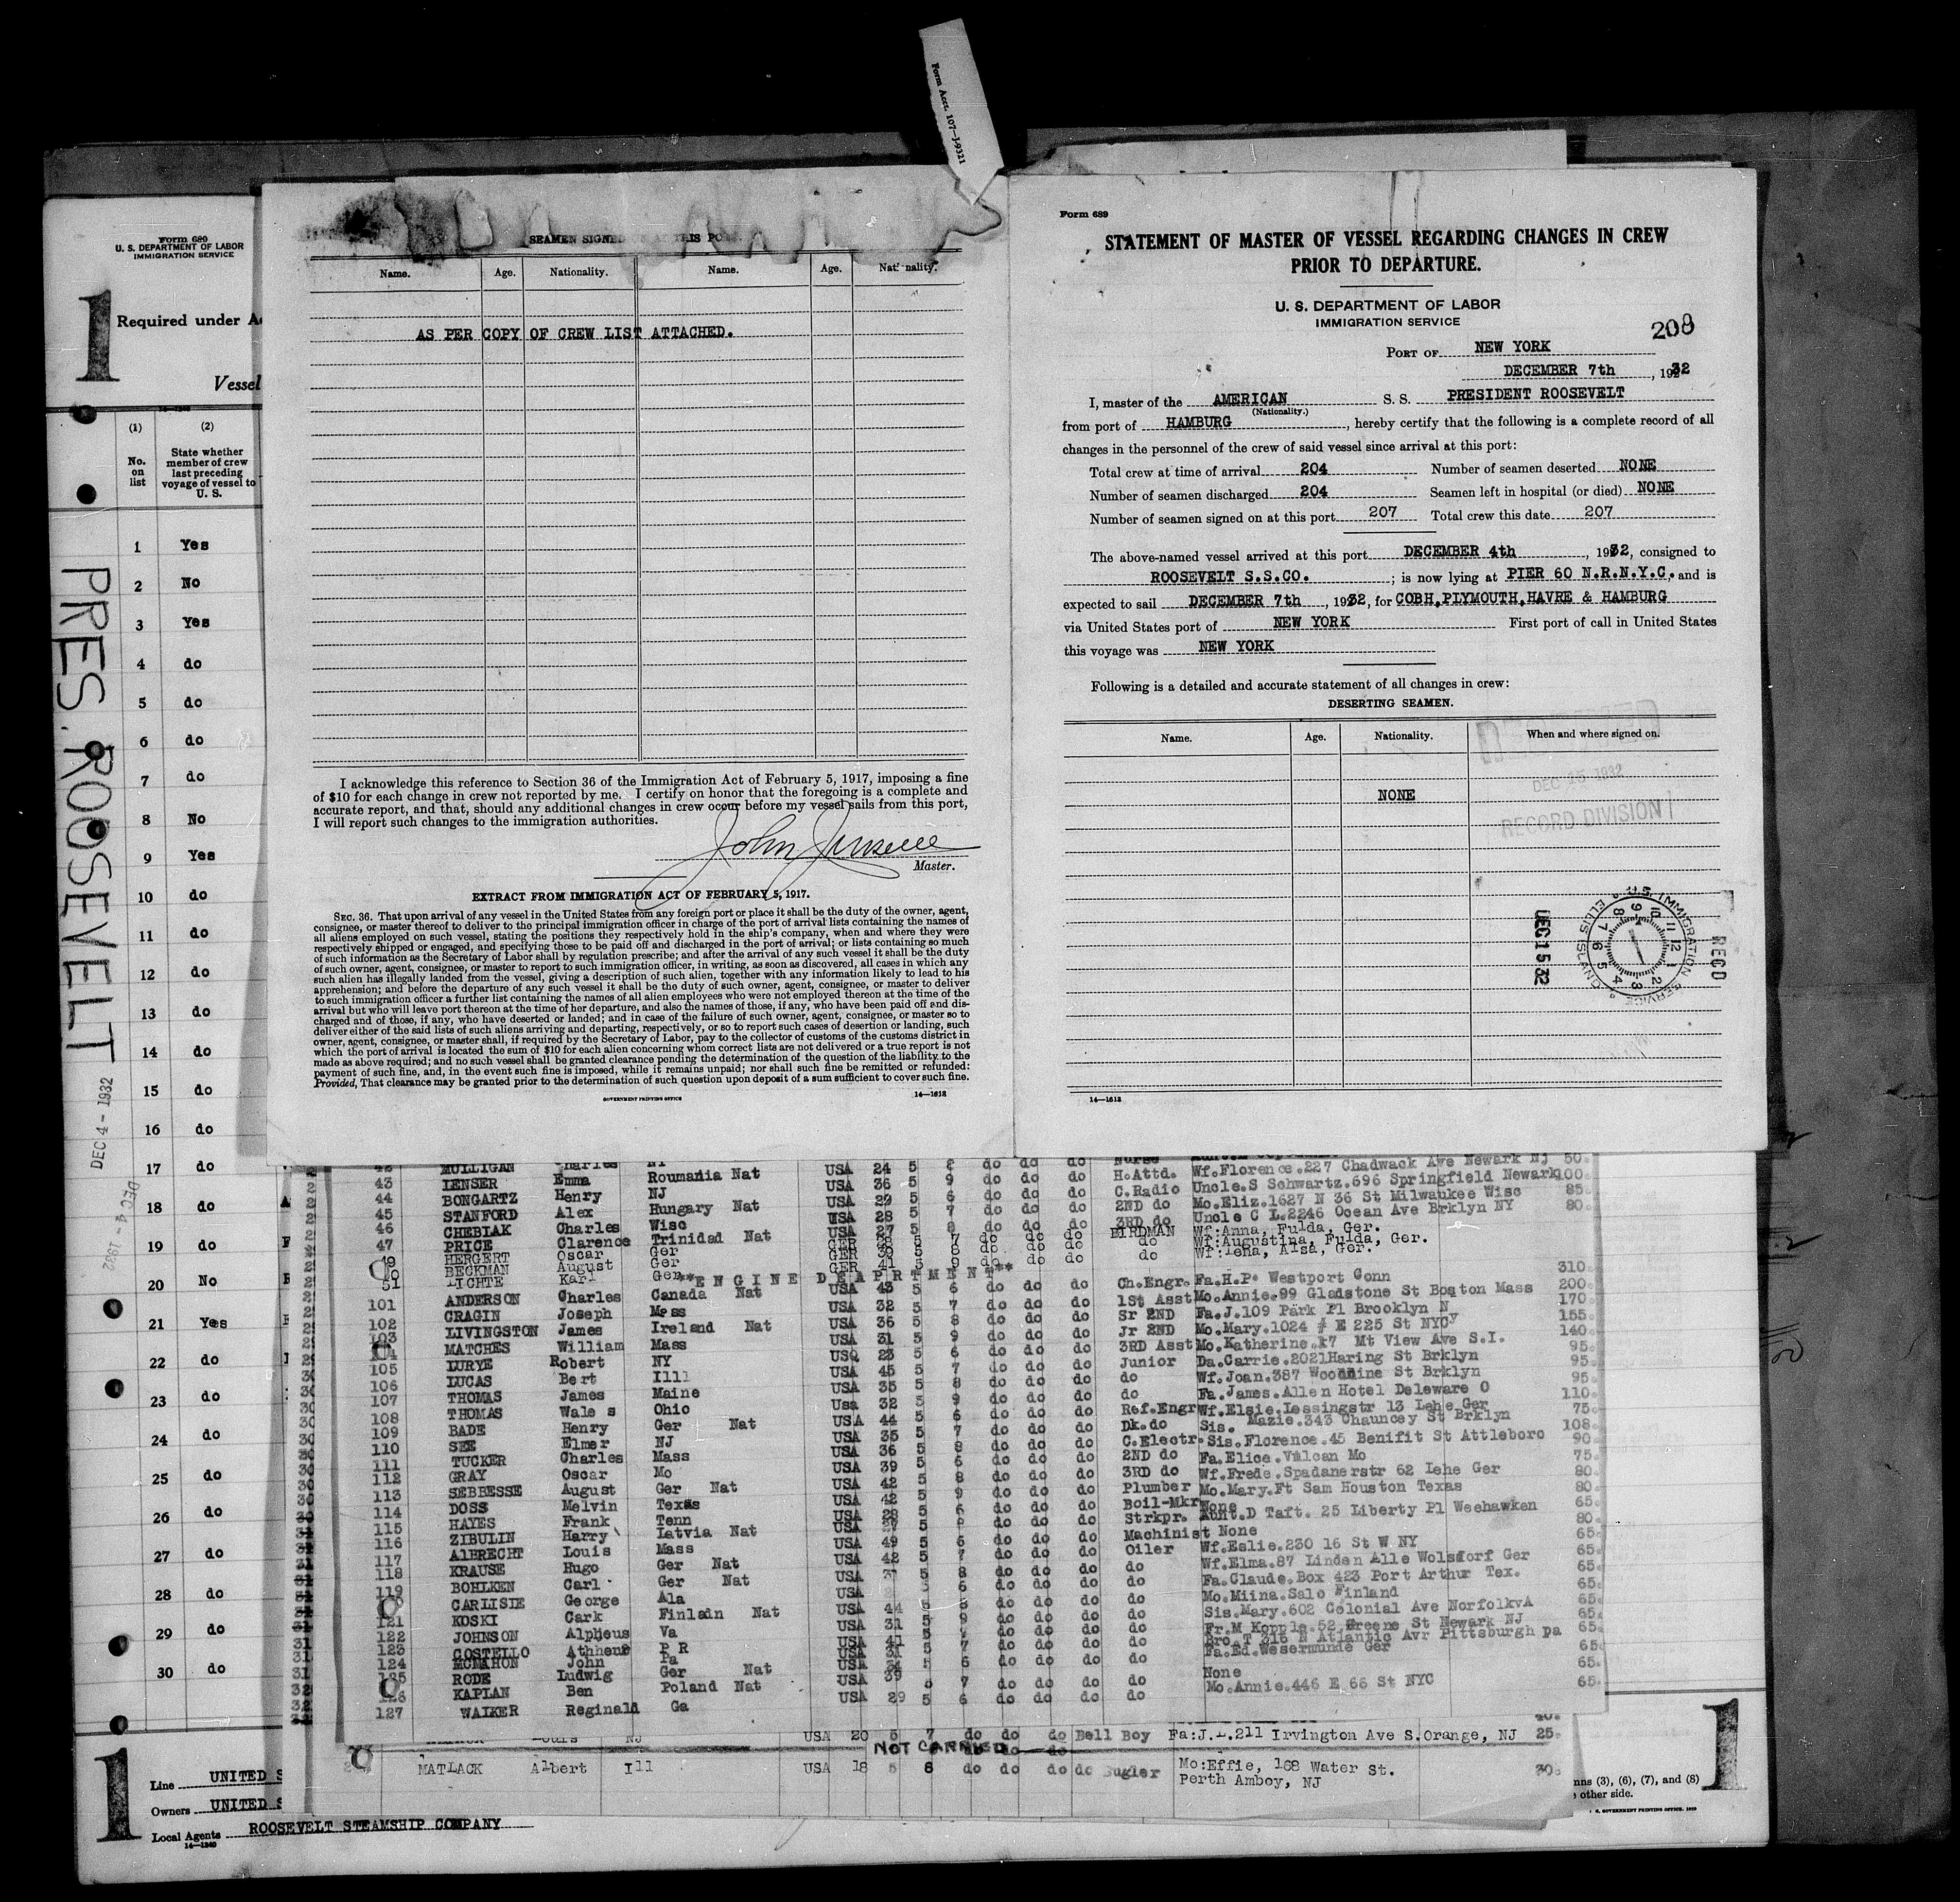 Form Acct. 107—I-9321
Form 689
U. S. DEPARTMENT OF LABOR
IMMIGRATION SERVICE
1
Required under
Vessel
(1) (2)
No. on list
State whether member of crew last preceding voyage of vessel to U. S.
1 Yes
2 No
3 Yes
4 do
5 do
6 do
7 do
8 No
9 Yes
10 do
11 do
12 do
13 do
14 do
15 do
16 do
17 do
18 do
19 do
20 No
21 Yes
22 do
23 do
24 do
25 do
26 do
27 do
28 do
29 do
30 do
PRES. ROOSEVELT
DEC 4 - 1932
DEC 4 - 1932
Line UNITED S
Owners UNITED S
Local Agents ROOSEVELT STEAMSHIP COMPANY
14—1240
1
SEAMEN SIGNED AT THIS
Name. Age. Nationality. Name. Age. Nationality.
AS PER COPY OF CREW LIST ATTACHED.
I acknowledge this reference to Section 36 of the Immigration Act of February 5, 1917, imposing a fine
of $10 for each change in crew not reported by me. I certify on honor that the foregoing is a complete and
accurate report, and that, should any additional changes in crew occur before my vessel sails from this port,
I will report such changes to the immigration authorities.
John Jensen
Master.
EXTRACT FROM IMMIGRATION ACT OF FEBRUARY 5, 1917.
SEC. 36. That upon arrival of any vessel in the United States from any foreign port or place it shall be the duty of the owner, agent,
consignee, or master thereof to deliver to the principal immigration officer in charge of the port of arrival lists containing the names of
all aliens employed on such vessel, stating the positions they respectively hold in the ship's company, when and where they were
respectively shipped or engaged, and specifying those to be paid off and discharged in the port of arrival; or lists containing so much
of such information as the Secretary of Labor shall by regulation prescribe; and after the arrival of any such vessel it shall be the duty
of such owner, agent, consignee, or master to report to such immigration officer, in writing, as soon as discovered, all cases in which any
such alien has illegally landed from the vessel, giving a description of such alien, together with any information likely to lead to his
apprehension; and before the departure of any such vessel it shall be the duty of such owner, agent, consignee, or master to deliver
to such immigration officer a further list containing the names of all alien employees who were not employed thereon at the time of the
arrival but who will leave port thereon at the time of her departure, and also the names of those, if any, who have been paid off and dis-
charged and of those, if any, who have deserted or landed; and in case of the failure of such owner, agent, consignee, or master so to
deliver either of the said lists of such aliens arriving and departing, respectively, or so to report such cases of desertion or landing, such
owner, agent, consignee, or master shall, if required by the Secretary of Labor, pay to the collector of customs of the customs district in
which the port of arrival is located the sum of $10 for each alien concerning whom correct lists are not delivered or a true report is not
made as above required; and no such vessel shall be granted clearance pending the determination of the question of the liability to the
payment of such fine, and, in the event such fine is imposed, while it remains unpaid; nor shall such fine be remitted or refunded:
Provided, That clearance may be granted prior to the determination of such question upon deposit of a sum sufficient to cover such fine.
GOVERNMENT PRINTING OFFICE 14—1612
Form 689
STATEMENT OF MASTER OF VESSEL REGARDING CHANGES IN CREW
PRIOR TO DEPARTURE.
U. S. DEPARTMENT OF LABOR
IMMIGRATION SERVICE
208
PORT OF NEW YORK
DECEMBER 7th, 1932
I, master of the AMERICAN S. S. PRESIDENT ROOSEVELT
(Nationality.)
from port of HAMBURG, hereby certify that the following is a complete record of all
changes in the personnel of the crew of said vessel since arrival at this port:
Total crew at time of arrival 204 Number of seamen deserted NONE
Number of seamen discharged 204 Seamen left in hospital (or died) NONE
Number of seamen signed on at this port 207 Total crew this date 207
The above-named vessel arrived at this port DECEMBER 4th, 1932, consigned to
ROOSEVELT S.S.CO. ; is now lying at PIER 60 N.R.N.Y.C. and is
expected to sail DECEMBER 7th, 1932, for COBH,PLYMOUTH,HAVRE & HAMBURG
via United States port of NEW YORK First port of call in United States
this voyage was NEW YORK
Following is a detailed and accurate statement of all changes in crew:
DESERTING SEAMEN.
Name. Age. Nationality. When and where signed on.
DEC 15 1932
NONE
RECORD DIVISION
RECD
U.S. IMMIGRATION SERVICE ELLIS ISLAND
DEC 15 32
14—1612
MULLIGAN Charles USA 24 5 do do do Nurse 50.
43 IENSER Emma Roumania Nat USA 36 5 9 do do do H.Attd. Wf.Florence.227 Chadwack Ave Newark NJ 100.
44 BONGARTZ Henry NJ USA 29 5 6 do do do C.Radio Uncle.S Schwartz.696 Springfield Newark 85.
45 STANFORD Alex Hungary Nat USA 28 5 7 do do do 2ND do Mo.Eliz.1627 N 36 St Milwaukee Wisc 80.
46 CHEBIAK Charles Wisc USA 27 5 8 do do do 3RD do Uncle C L.2246 Ocean Ave Brklyn NY
47 PRICE Clarence Trinidad Nat GER 5 7 do do do BIRDMAN Wf:Anna, Fulda, Ger.
HERGERT Oscar Ger GER 5 8 do do do do Wf:Augustina, Fulda, Ger.
BECKMAN August Ger GER 41 5 9 do do do do Wf:Lena, Alsa, Ger.
51 LICHTE Karl Ger
**ENGINE DEAPRTMENT** 310.
101 ANDERSON Charles Canada Nat USA 43 5 6 do do do Ch.Engr. Fa.H.P. Westport Conn 200.
102 CRAGIN Joseph Mass USA 32 5 7 do do do 1St Asst Mo.Annie.99 Gladstone St Boston Mass 170.
103 LIVINGSTON James Ireland Nat USA 36 5 8 do do do Sr 2ND Fa.J.109 Park Pl Brooklyn N 155.
MATCHES William Mass USA 31 5 9 do do do Jr 2ND Mo.Mary.1024 # E 225 St NYC 140.
105 LURYE Robert NY USQ 23 5 6 do do do 3RD Asst Mo.Katherine.17 Mt View Ave S.I. 95.
106 LUCAS Bert Illl USA 45 5 7 do do do Junior Da.Carrie.2021Haring St Brklyn 95.
107 THOMAS James Maine USA 35 5 8 do do do do Wf.Joan.387 Woodbine St Brklyn 95.
108 THOMAS Wale s Ohio Usa 32 5 9 do do do do Fa.James.Allen Hotel Deleware O 110.
109 BADE Henry Ger Nat USA 44 5 6 do do do Ref.Engr Wf.Elsie.Lessingstr 13 Lehe Ger 75.
110 SEE Elmer NJ USA 35 5 7 do do do Dk.do Sis. Mazie.343 Chauncey St Brklyn 108.
111 TUCKER Charles Mass USA 36 5 8 do do do C.Electr. Sis.Florence.45 Benifit St Attleboro 90.
112 GRAY Oscar Mo USA 39 5 6 do do do 2ND do Fa.Elice.Vulcan Mo 75.
113 SEBBESSE August Ger Nat USA 42 5 8 do do do 3RD do Wf.Frede.Spadanerstr 62 Lehe Ger 80.
114 DOSS Melvin Texas USA 42 5 9 do do do Plumber Mo.Mary.Ft Sam Houston Texas 80.
115 HAYES Frank Tenn USA 28 5 6 do do do Boil-Mkr None 65.
116 ZIBULIN Harry Latvia Nat USA 5 do do do Strkpr. Aunt.D Taft. 25 Liberty Pl Weehawken 80.
117 ALBRECHT Louis Mass USA 49 5 6 do do do Machinist None 65.
118 KRAUSE Hugo Ger Nat USA 42 5 7 do do do Oiler Wf.Eslie.230 16 St W NY 65.
119 BOHLKEN Carl Ger Nat USA 5 8 do do do do Wf.Elma.87 Linden Alle Wolsdorf Ger 65.
CARLISIE George Ala USA 6 do do do do Fa.Claude.Box 423 Port Arthur Tex. 65.
121 KOSKI Cark Finladn Nat USA 44 do do do do Mo.Miina.Salo Finland 65.
122 JOHNSON Alpheus Va USA 31 5 9 do do do do Sis.Mary.602 Colonial Ave NorfolkvA 65.
123 COSTELLO Athheus P R USA 41 5 do do do do Fr.M Kopple.52 Greene St Newark NJ 65.
124 MCMAHON John Pa USA 5 7 do do do do Bro.T 315 N Atlantic Avr Pittsburgh pa
125 RODE Ludwig Ger Nat USA 5 6 do do do do Fa.Ed.Wesermunde Ger 65.
126 KAPLAN Ben Poland Nat USA 39 7 do do do do None 65.
127 WALKER Reginald Ga USA 29 5 6 do do do do Mo.Annie.446 E 66 St NYC 65.
Louis NJ USA 20 5 7 do do do Bell Boy Fa:J.L.211 Irvington Ave S.Orange, NJ 25.
NOT CARRIED
MATLACK Albert Ill USA 18 5 8 do do do do Bugler Mo:Effie, 168 Water St. 30.
Perth Amboy, NJ
nns (3), (6), (7), and (8)
other side.
1